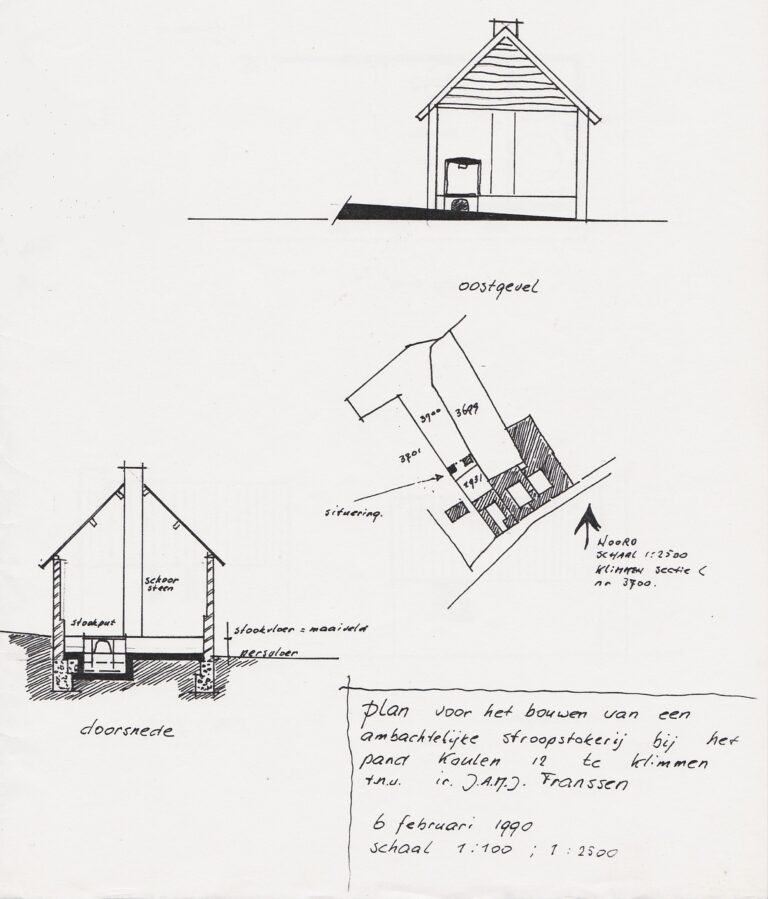 oostgevel
3700
3699
3701
2931
situering.
NOORD
SCHAAL 1:2500
KLIMMEN sectie C
nr 3700.
schoor
steen
stookput
stookvloer = maaiveld
persvloer
doorsnede
plan voor het bouwen van een
ambachtelijke stroopstokerij bij het
pand Koulen 12 te Klimmen
t.n.v. ir. J.A.M.J. Franssen
6 februari 1990
schaal 1:100 ; 1:2500